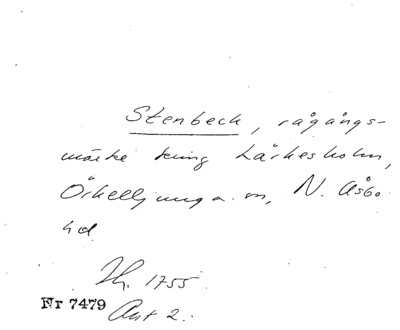 Stenbeck, rågångs-
märke kring Lärkesholm,
Örkelljunga sn, N. Åsbo
hd
Th. 1755.
Nr 7479
Akt 2.